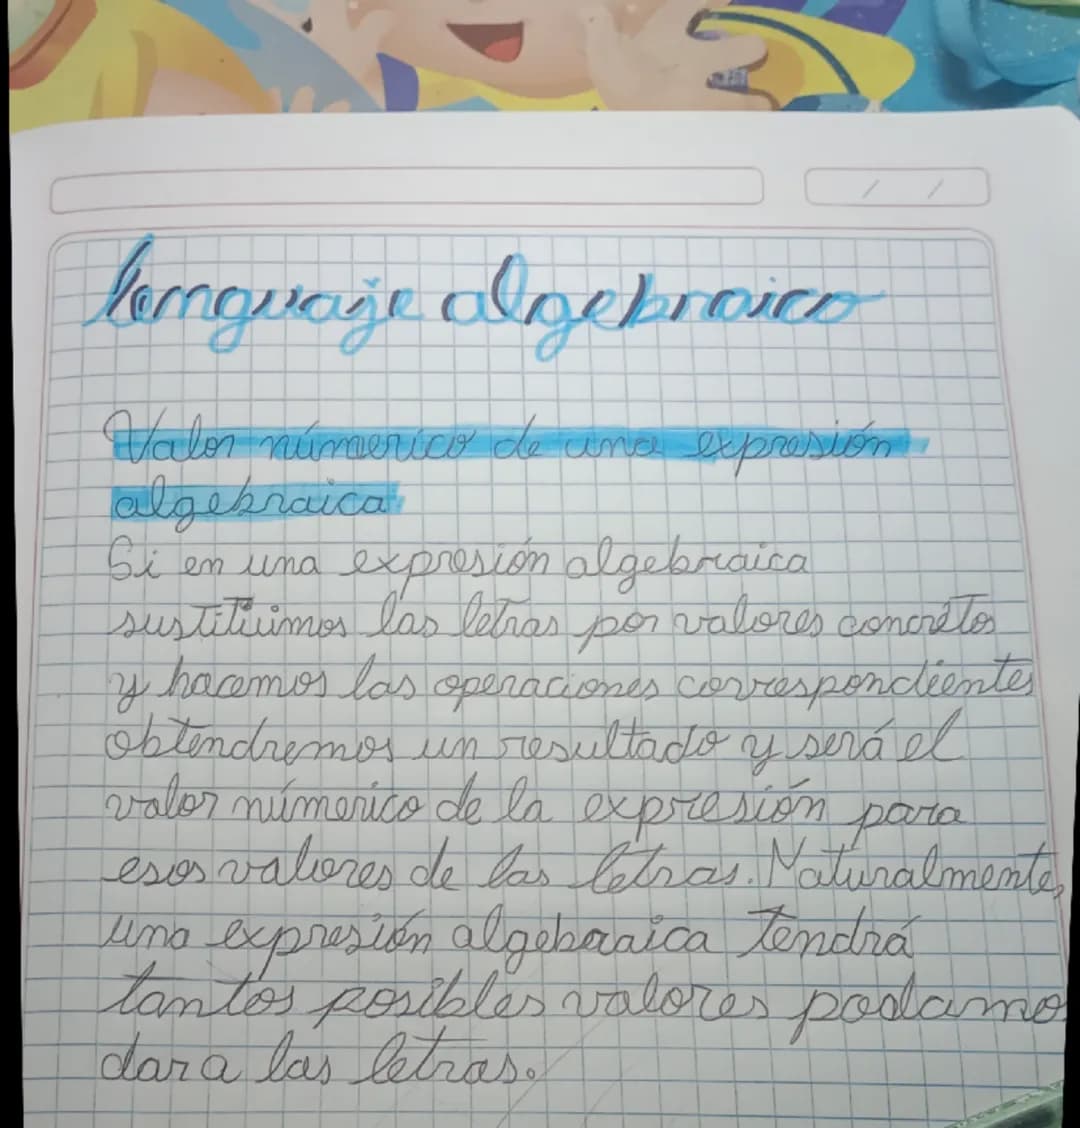 lenguaje algebraico
Valor númerico de una expresión
algebraica
Si en una expresión algebraica
sustituimos las letras por valores concretos
y hacemos las operaciones correspondientes
obtendremos un resultado y será el
valor númerico de la expresión para
esos valores de las letras. Naturalmente,
una expresión algebraica tendrá
tantos posibles valores podamo
dara las letras.